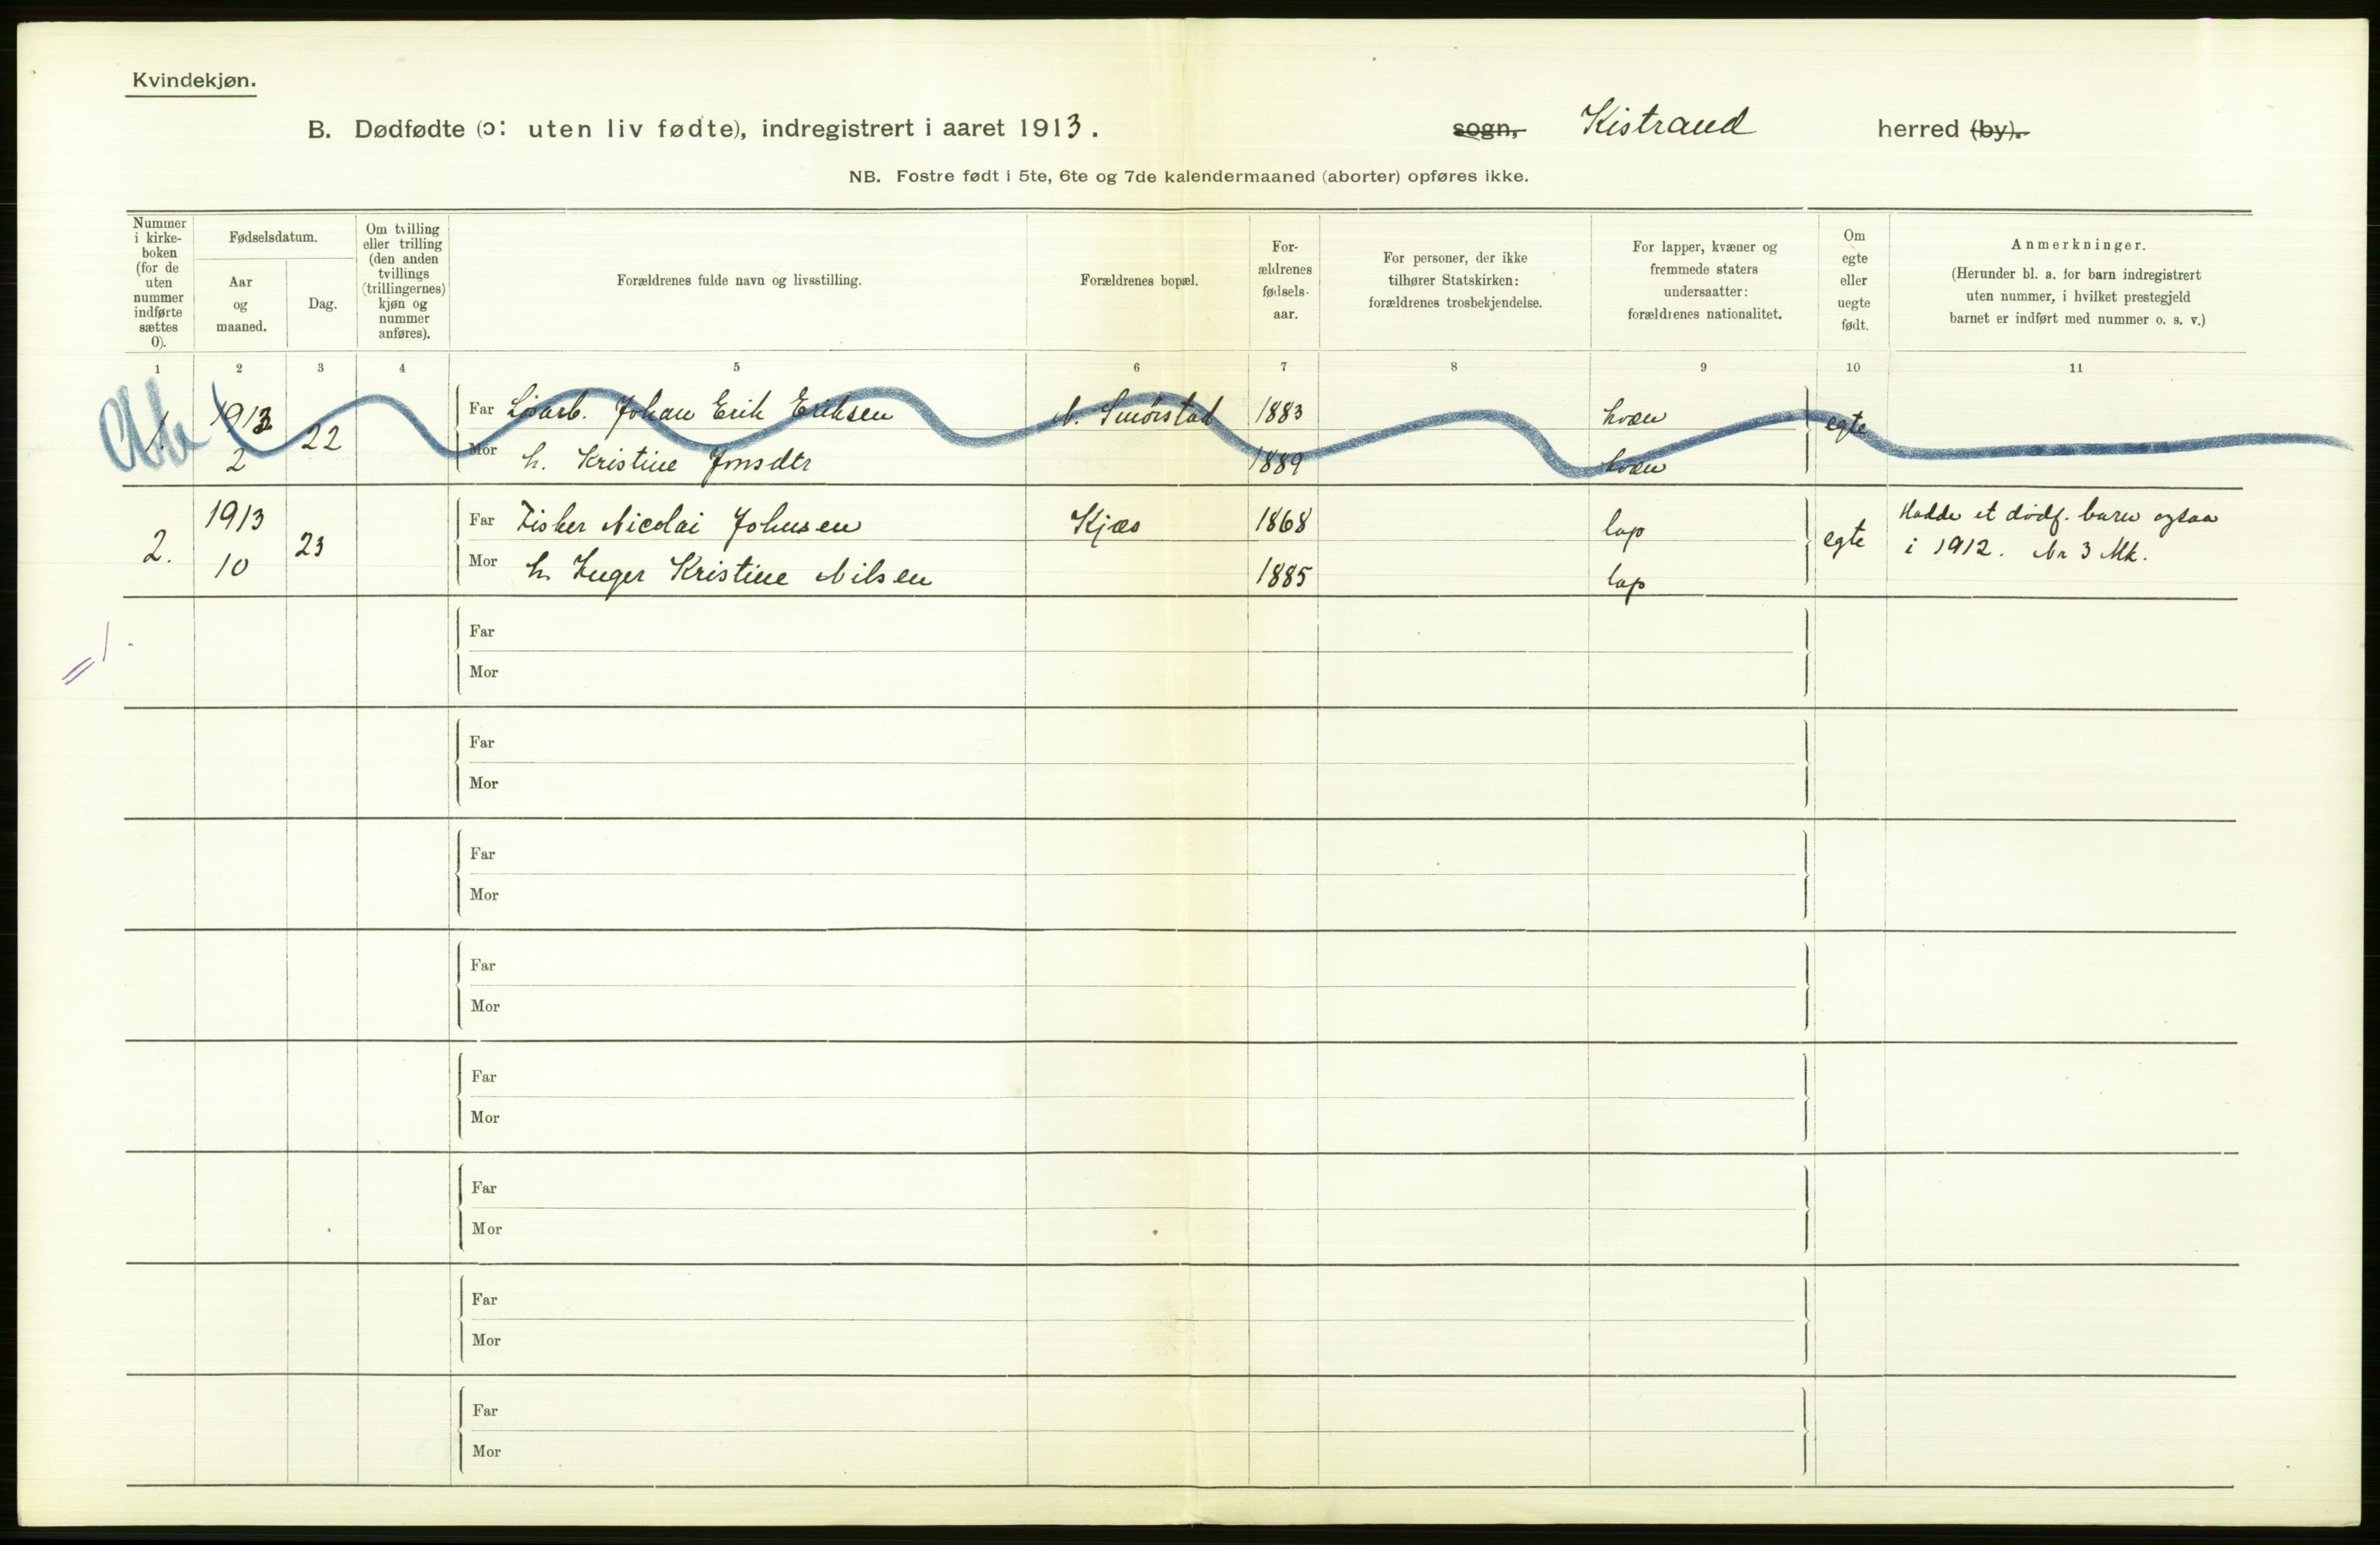 Kvindekjøn.
B. Dødfødte (ɔ: uten liv fødte), indregistrert i aaret 1913. sogn, Kistrand herred (by).
NB. Fostre født i 5te, 6te og 7de kalendermaaned (aborter) opføres ikke.
Nummer
i kirke-
boken
(for de
uten
nummer
indførte
sættes
0).
Fødselsdatum.
Aar
og
maaned.
Dag.
Om tvilling
eller trilling
(den anden
tvillings
(trillingernes)
kjøn og
nummer
anføres).
Forældrenes fulde navn og livsstilling.
Forældrenes bopæl.
For-
ældrenes
fødsels-
aar.
For personer, der ikke
tilhører Statskirken:
forældrenes trosbekjendelse.
For lapper, kvæner og
fremmede staters
undersaatter:
forældrenes nationalitet.
Om
egte
eller
uegte
født.
Anmerkninger.
(Herunder bl. a. for barn indregistrert
uten nummer, i hvilket prestegjeld
barnet er indført med nummer o. s. v.)
1 2 3 4 5 6 7 8 9 10 11
1. 1913 2 22
Far Løsarb. Johan Erik Eriksen N. Smørstad 1883 kvæn egte
Mor h. Kristine Jonsdtr 1889 kvæn
2. 1913 10 23
Far Fisker Nicolai Johnsen Kjæs 1868 lap egte Hadde et dødf. barn ogsaa
i 1912. Nr 3 Mk.
Mor h. Inger Kristine Nilsen 1885 lap
Far
Mor
Far
Mor
Far
Mor
Far
Mor
Far
Mor
Far
Mor
Far
Mor
Far
Mor